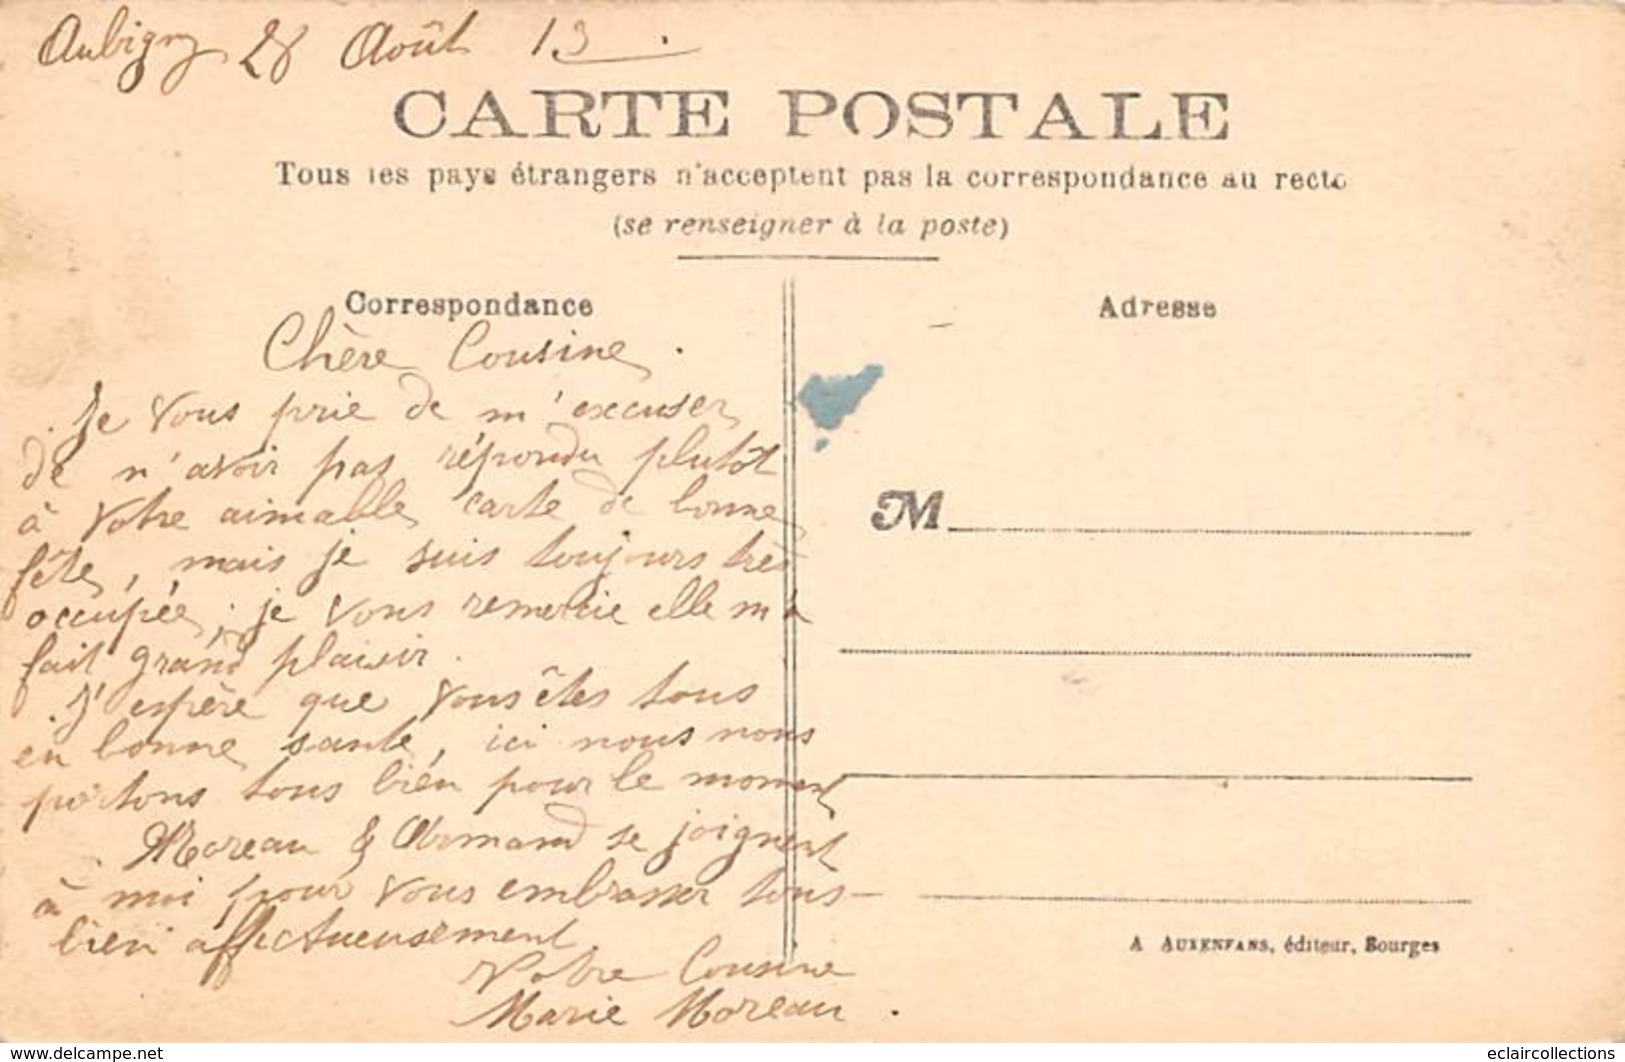 Aubigny 28 Août 13.
CARTE POSTALE
Tous les pays étrangers n'acceptent pas la correspondance au recto
(se renseigner à la poste)
Correspondance
Adresse
Chère Cousine.
Je vous prie de m'excuser
de n'avoir pas répondu plutôt
à votre aimable carte de bonne
fête, mais je suis toujours très
occupée, je vous remercie elle m'a
fait grand plaisir.
J'espère que vous êtes tous
en bonne santé, ici nous nous
portons tous bien pour le moment
Moreau & Armand se joignent
à moi pour vous embrasser tous
bien affectueusement.
Votre Cousine
Marie Moreau.
M
A AUXENFANS, éditeur, Bourges
www.delcampe.net
eclaircollections